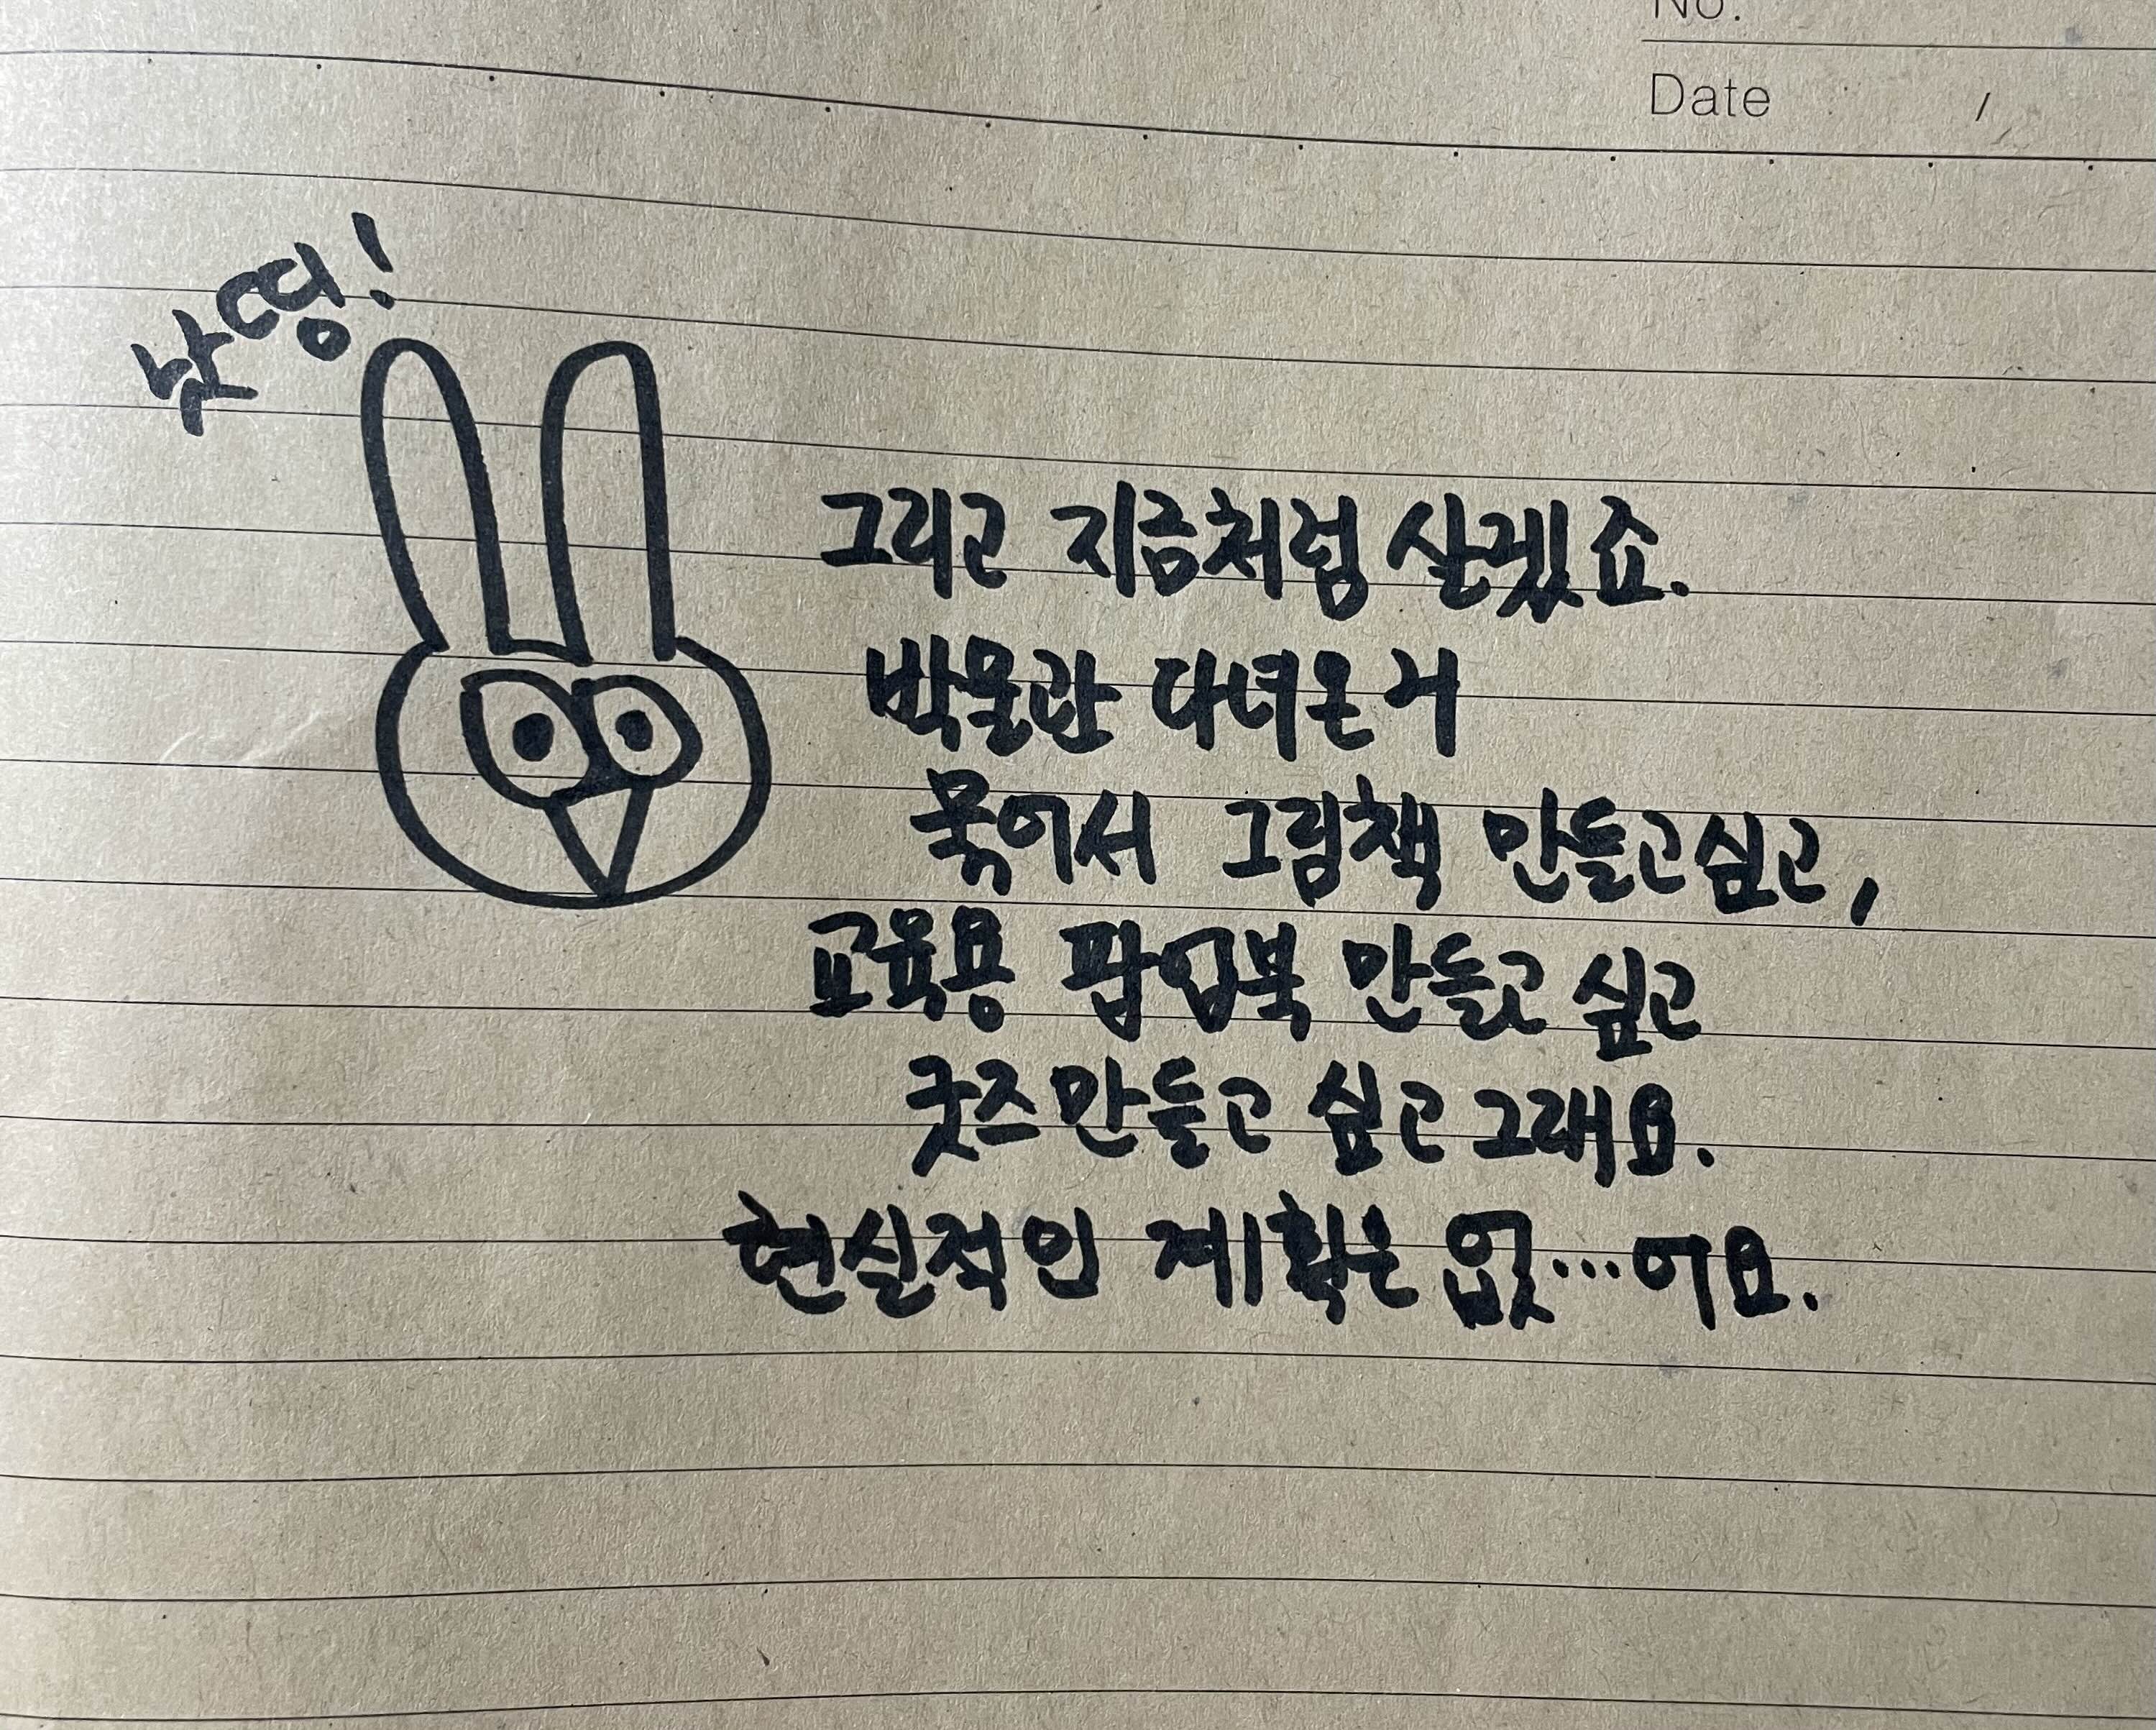 No.
Date /
낫띵!
그리고 지금처럼 살겠죠.
박물관 다녀온거
묶어서 그림책 만들고싶고,
교육용 팝업북 만들고 싶고
굿즈만들고 싶고 그래요.
현실적인 계획은 없…어요.